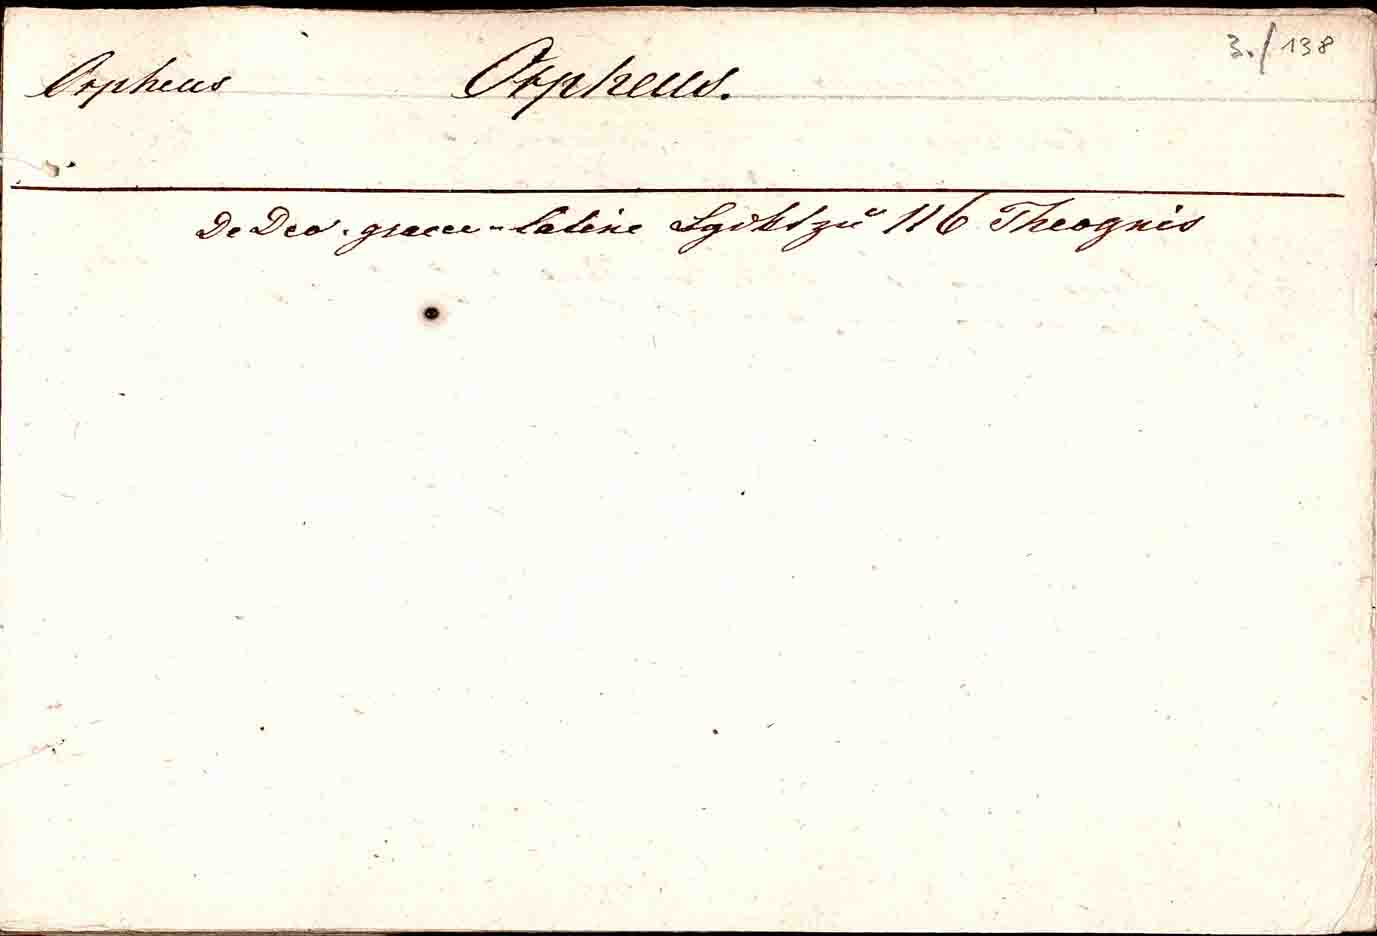 3./138
Orpheus Orpheus.
De Deo. graece-latine zu 116 Theognis